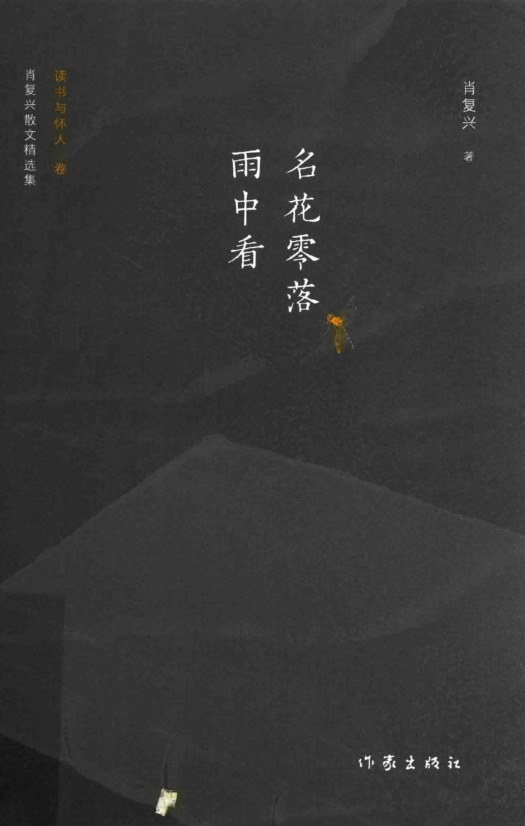 肖复兴 著
名花零落
雨中看
读书与怀人 卷
肖复兴散文精选集
作家出版社